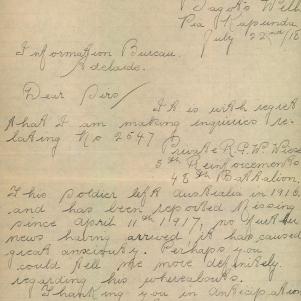 Jagoe's Well
Via Kapunda
July 22nd/18
Information Bureau.
Adelaide.
Dear Sirs/
It is with regret
that I am making inquiries re-
lating No 2647
Private R.G.W.
5th Reinforcements
48th Battalion,
This soldier left Australia in 1916.
and has been reported missing
since April 11th 1917, no further
news having arrived it has caused
great anxiety. Perhaps you
could tell me more definitely
regarding his whereabouts.
Thanking you in anticipation